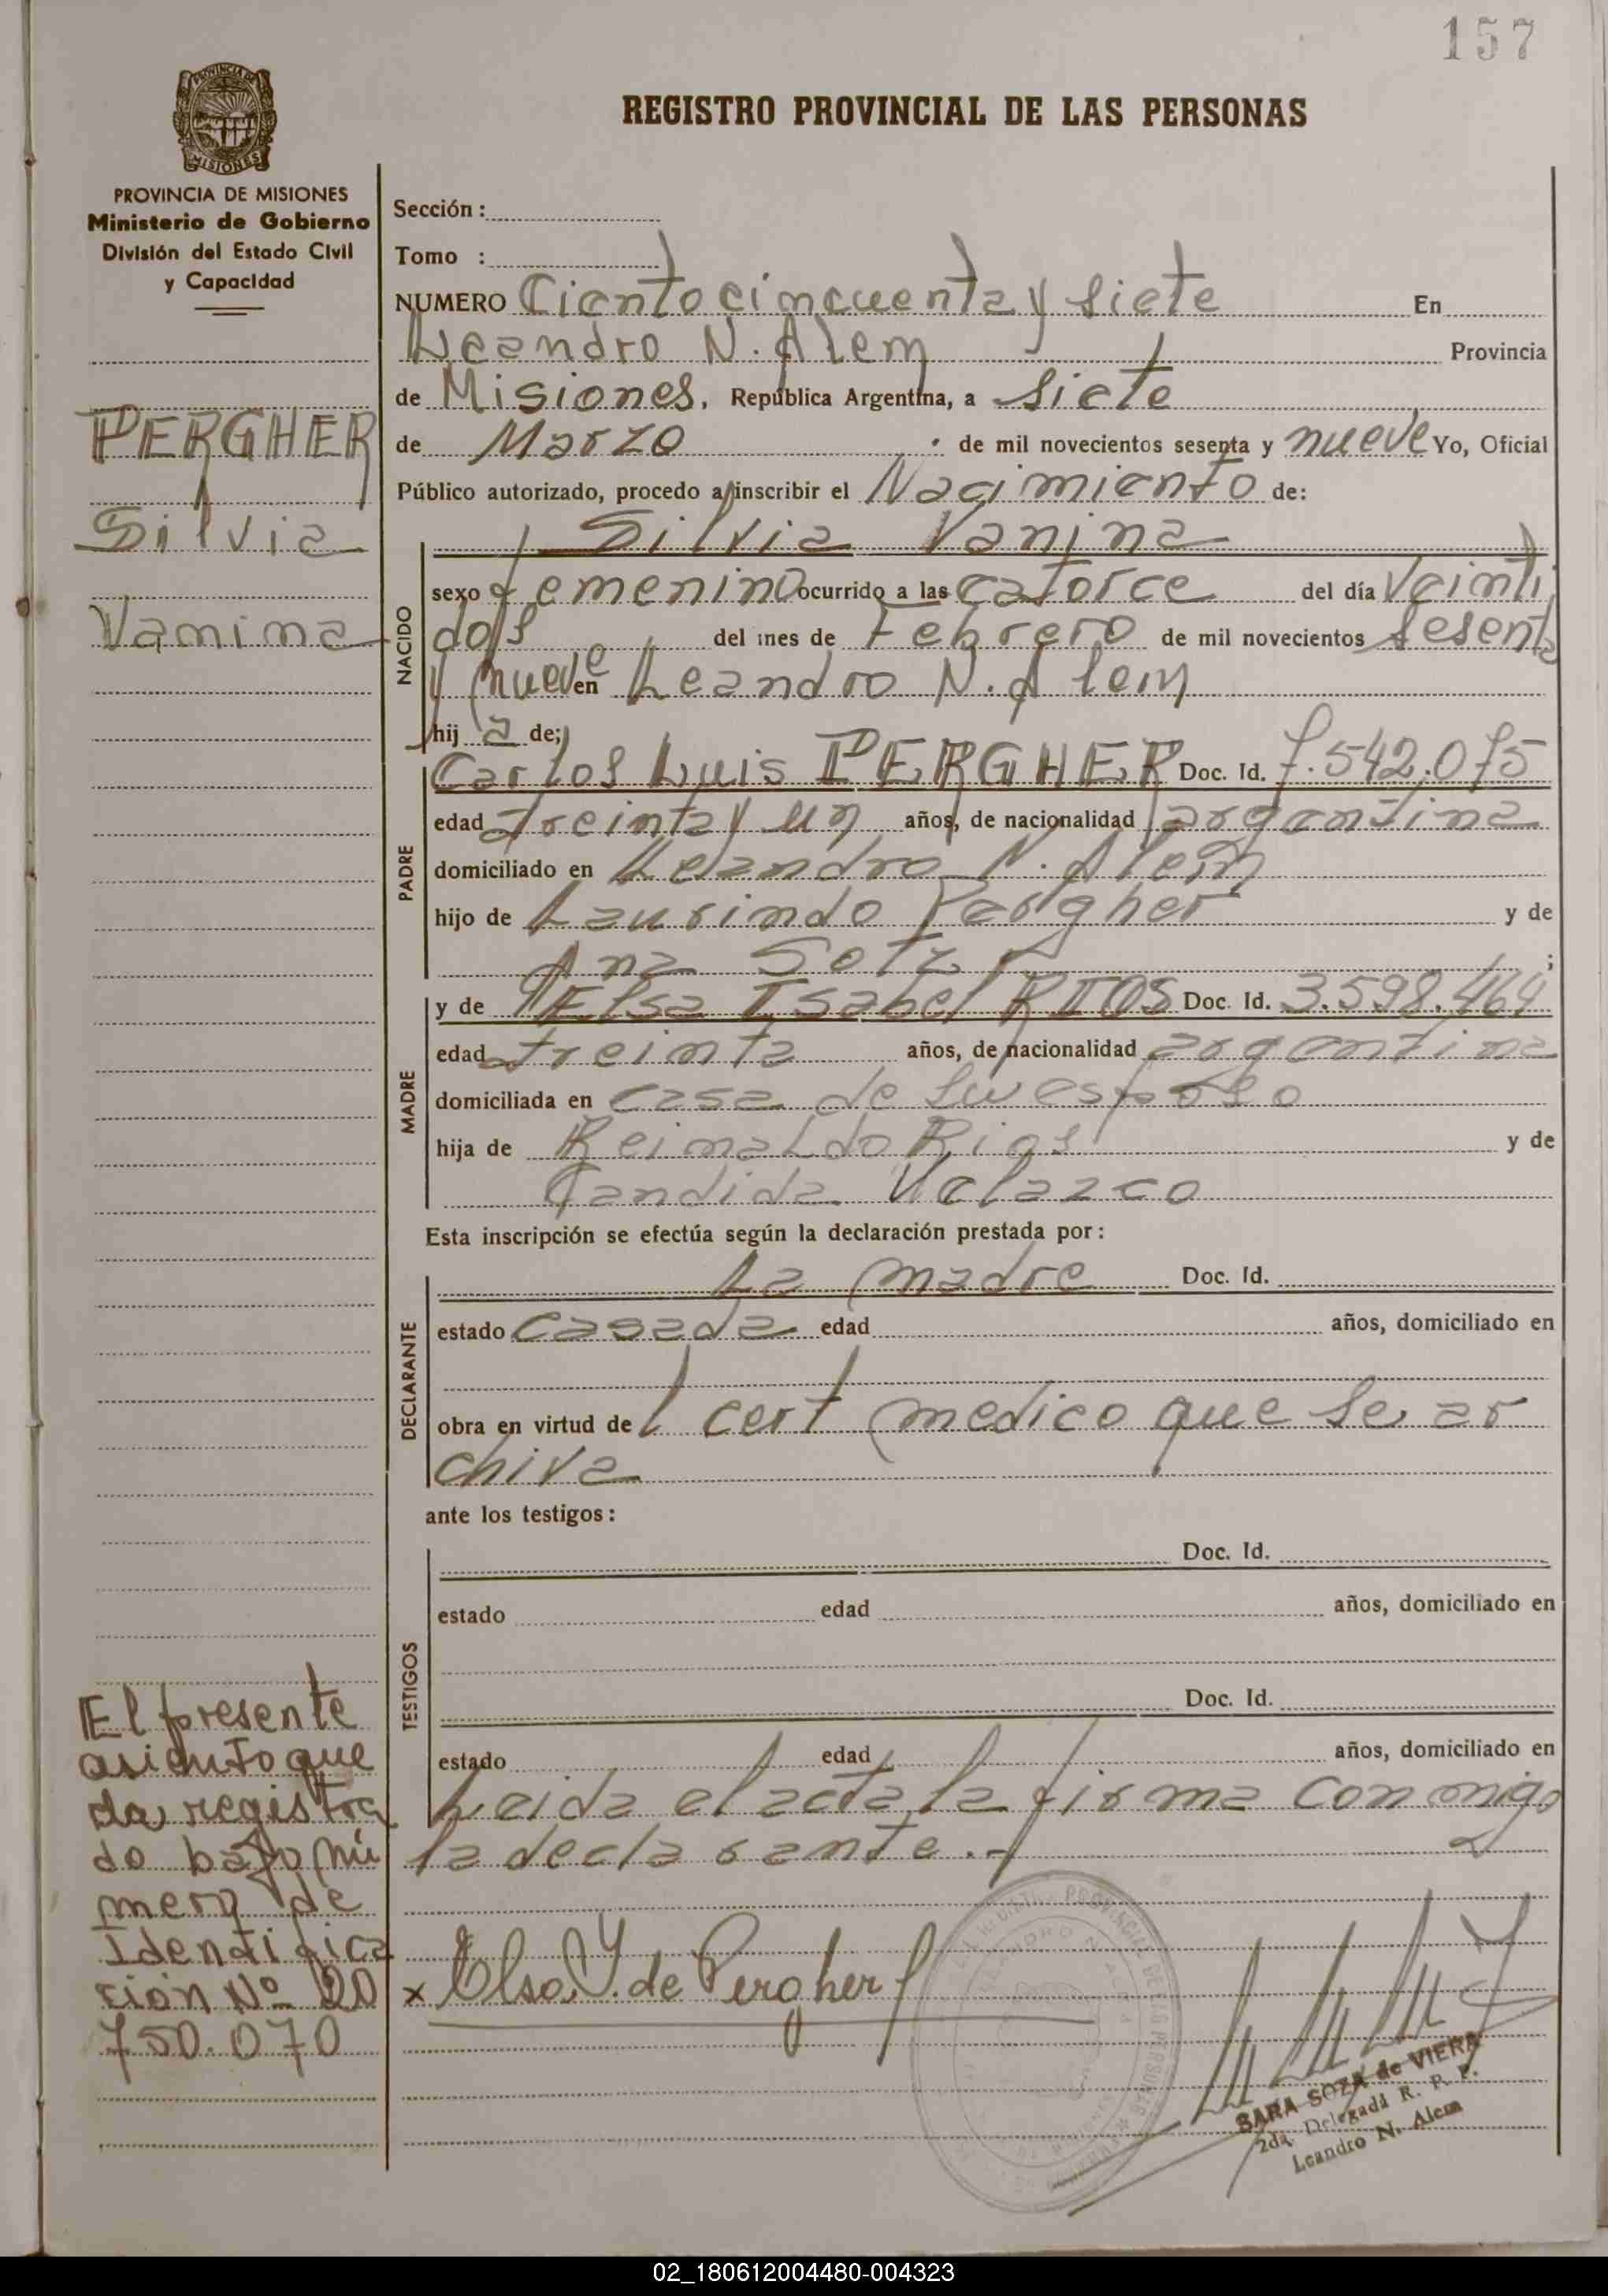 157
PROVINCIA DE
MISIONES
REGISTRO PROVINCIAL DE LAS PERSONAS
PROVINCIA DE MISIONES
Ministerio de Gobierno
División del Estado Civil
y Capacidad
PERGHER
Silvia
Vanina
Sección :
Tomo :
NUMERO Ciento cincuenta y siete En
Leandro N. Alem Provincia
de Misiones, República Argentina, a siete
de Marzo de mil novecientos sesenta y nueve Yo, Oficial
Público autorizado, procedo a inscribir el Nacimiento de:
NACIDO
Silvia Vanina
sexo femenino ocurrido a las catorce del día veinti
dos del mes de Febrero de mil novecientos sesenta
y nueve en Leandro N. Alem
hij a de;
PADRE
Carlos Luis PERGHER Doc. Id. 7.542.075
edad treinta y un años, de nacionalidad argentina
domiciliado en Leandro N. Alem
hijo de Laurindo Pergher y de
Ana Sotz ;
MADRE
y de Elsa Isabel RIOS Doc. Id. 3.598.464
edad treinta años, de nacionalidad argentina
domiciliada en casa de su esposo
hija de Reinaldo Rios y de
Candida Velazco
Esta inscripción se efectúa según la declaración prestada por :
DECLARANTE
La madre Doc. Id.
estado casada edad años, domiciliado en
obra en virtud del cert medico que se ar
chiva
ante los testigos :
TESTIGOS
Doc. Id.
estado edad años, domiciliado en
Doc. Id.
estado edad años, domiciliado en
Leida el acta, la firma conmigo
la declarante.-
El presente
asiento que
da registra
do bajo nú
mero de
Identifica
ción Nº 20
750.070
x Elsa Y. de Pergher
SARA SOZA de VIERA
2da. Delegada R. P. P.
Leandro N. Alem
02_180612004480-004323